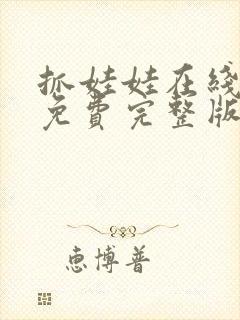 抓娃娃在线
免费完整版
惠博普